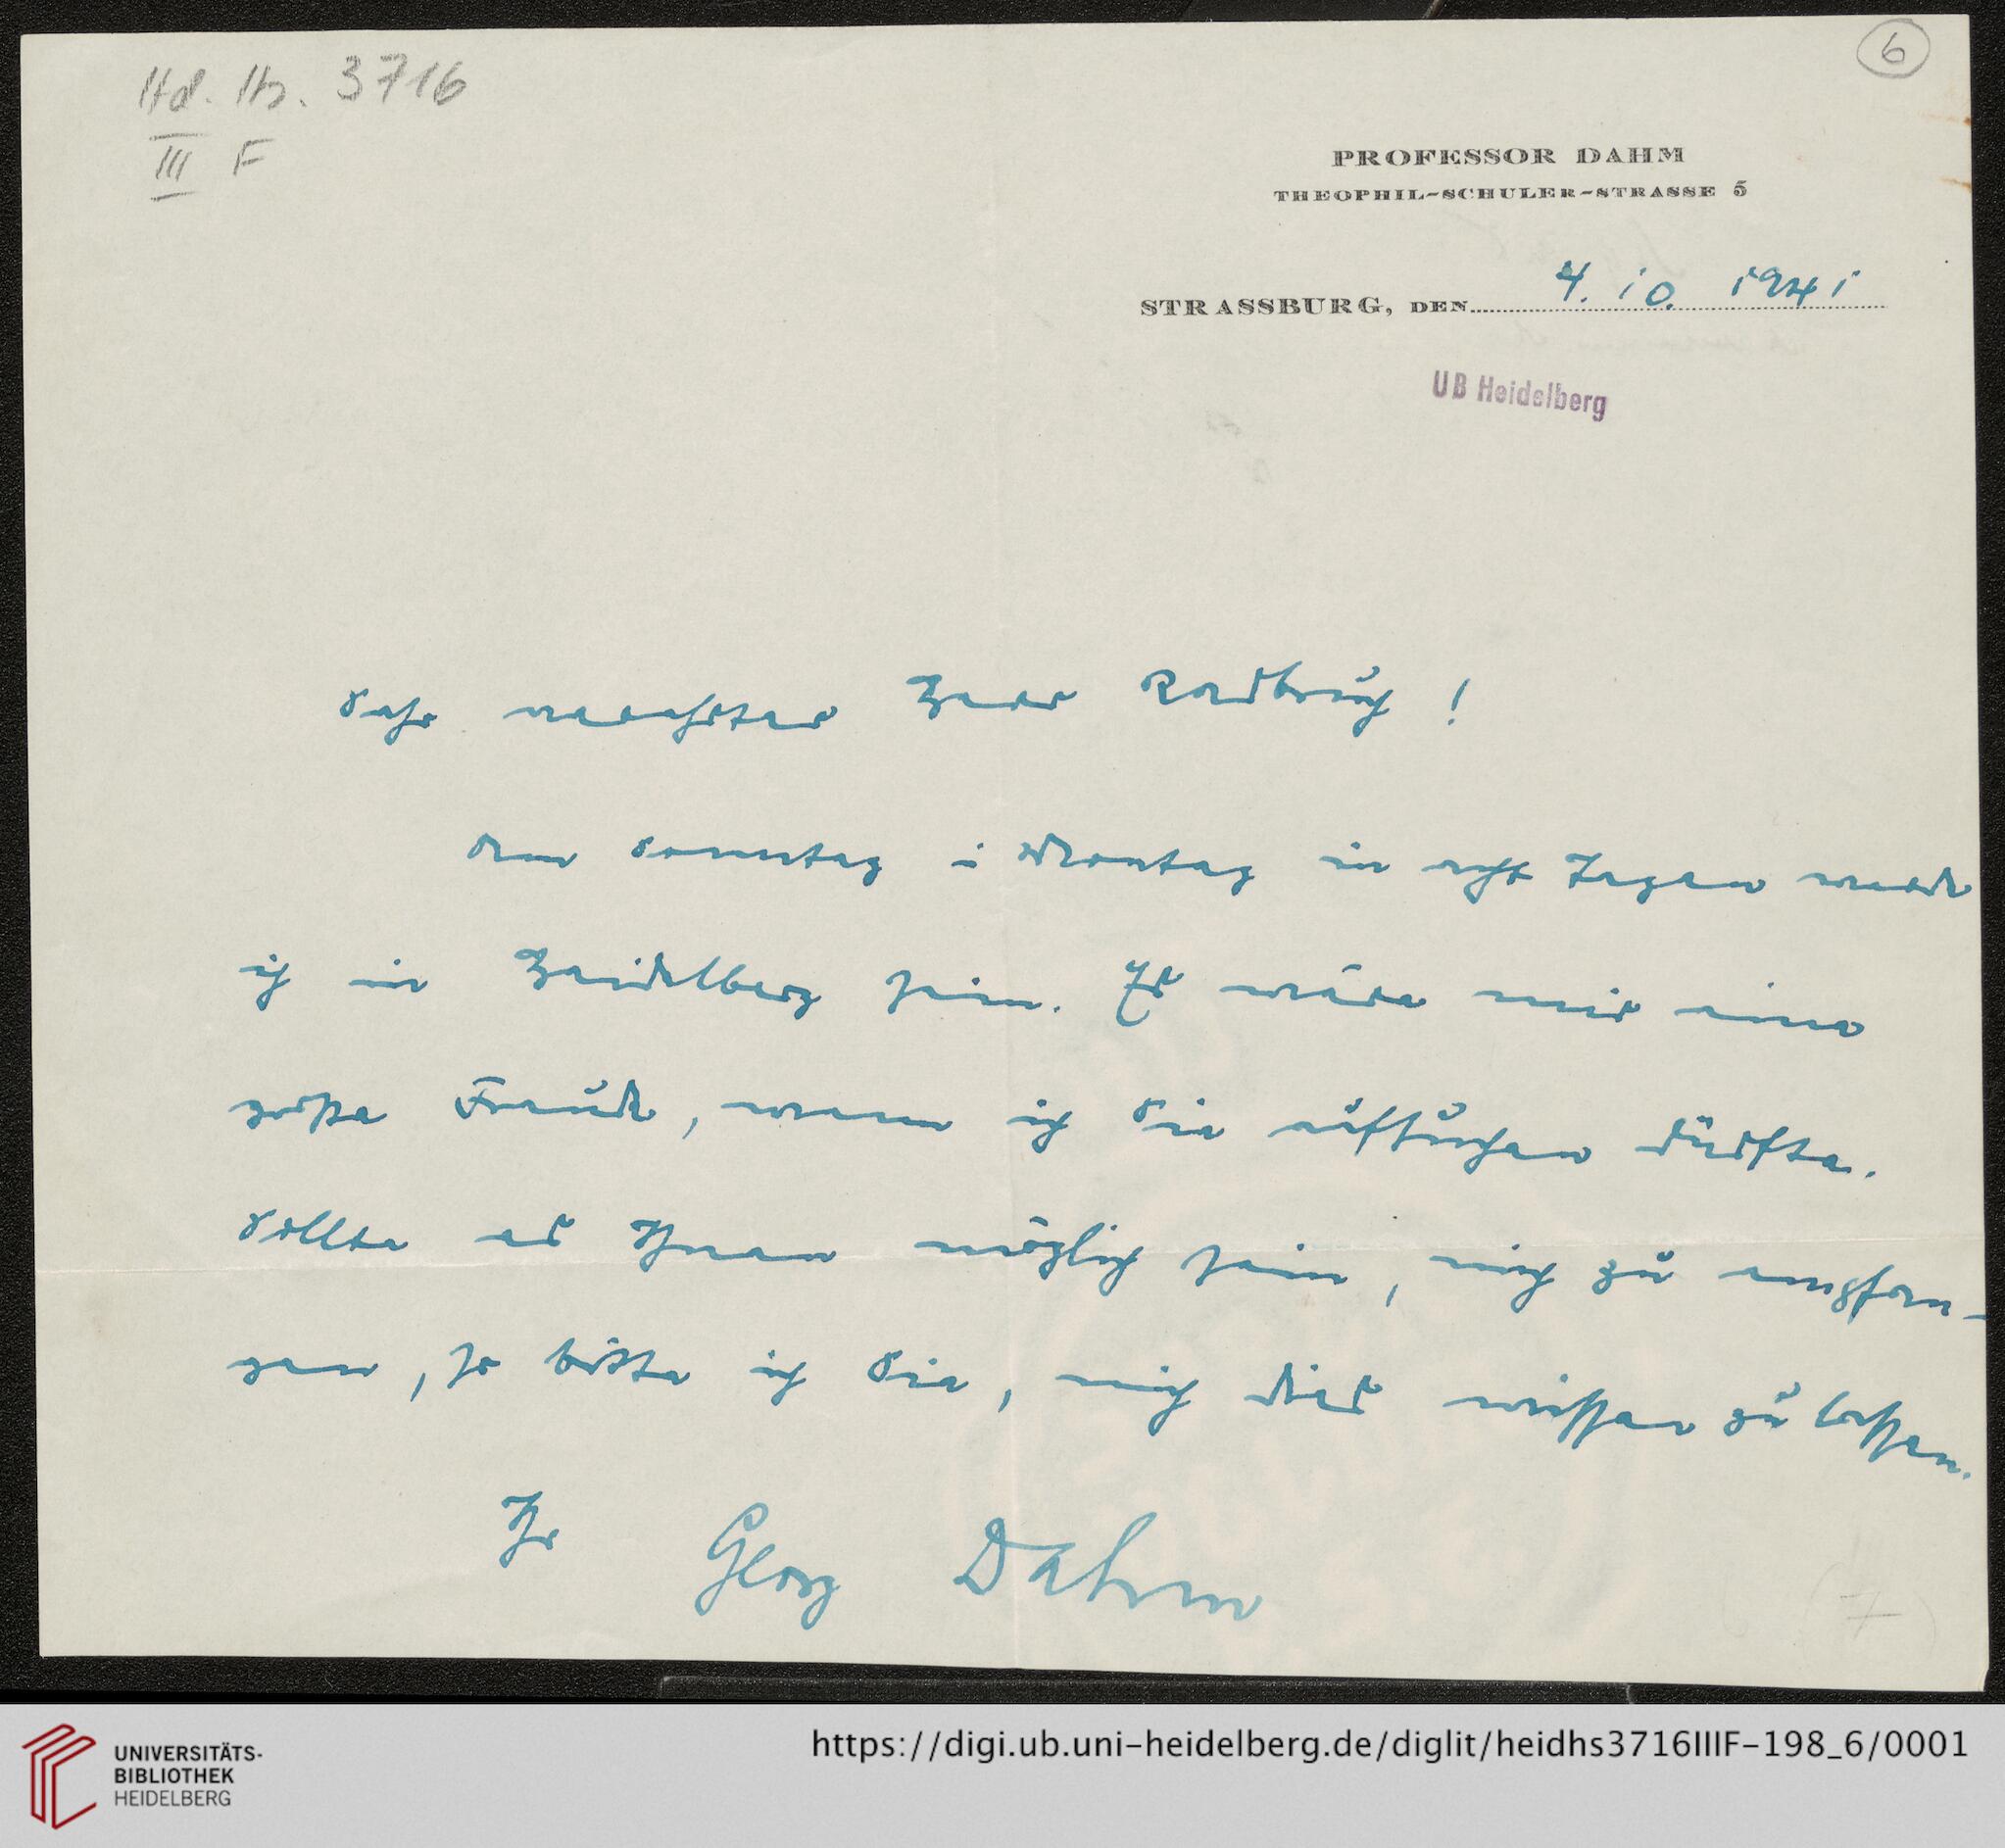 Hd. Hs. 3716
III F
6
PROFESSOR DAHM
THEOPHIL-SCHULER-STRASSE 5
STRASSBURG, DEN 4. 10. 1941
UB Heidelberg
Sehr verehrter Herr Radbruch!
Am Sonntag u Montag in acht Tagen werde
ich in Heidelberg sein. Es wäre mir eine
große Freude, wenn ich Sie aufsuchen dürfte.
Sollte es Ihnen möglich sein, mich zu empfan-
gen, so bitte ich Sie, mich dies wissen zu lassen.
Ihr Georg Dahm
(7)
UNIVERSITÄTS-
BIBLIOTHEK
HEIDELBERG
https://digi.ub.uni-heidelberg.de/diglit/heidhs3716IIIF-198_6/0001